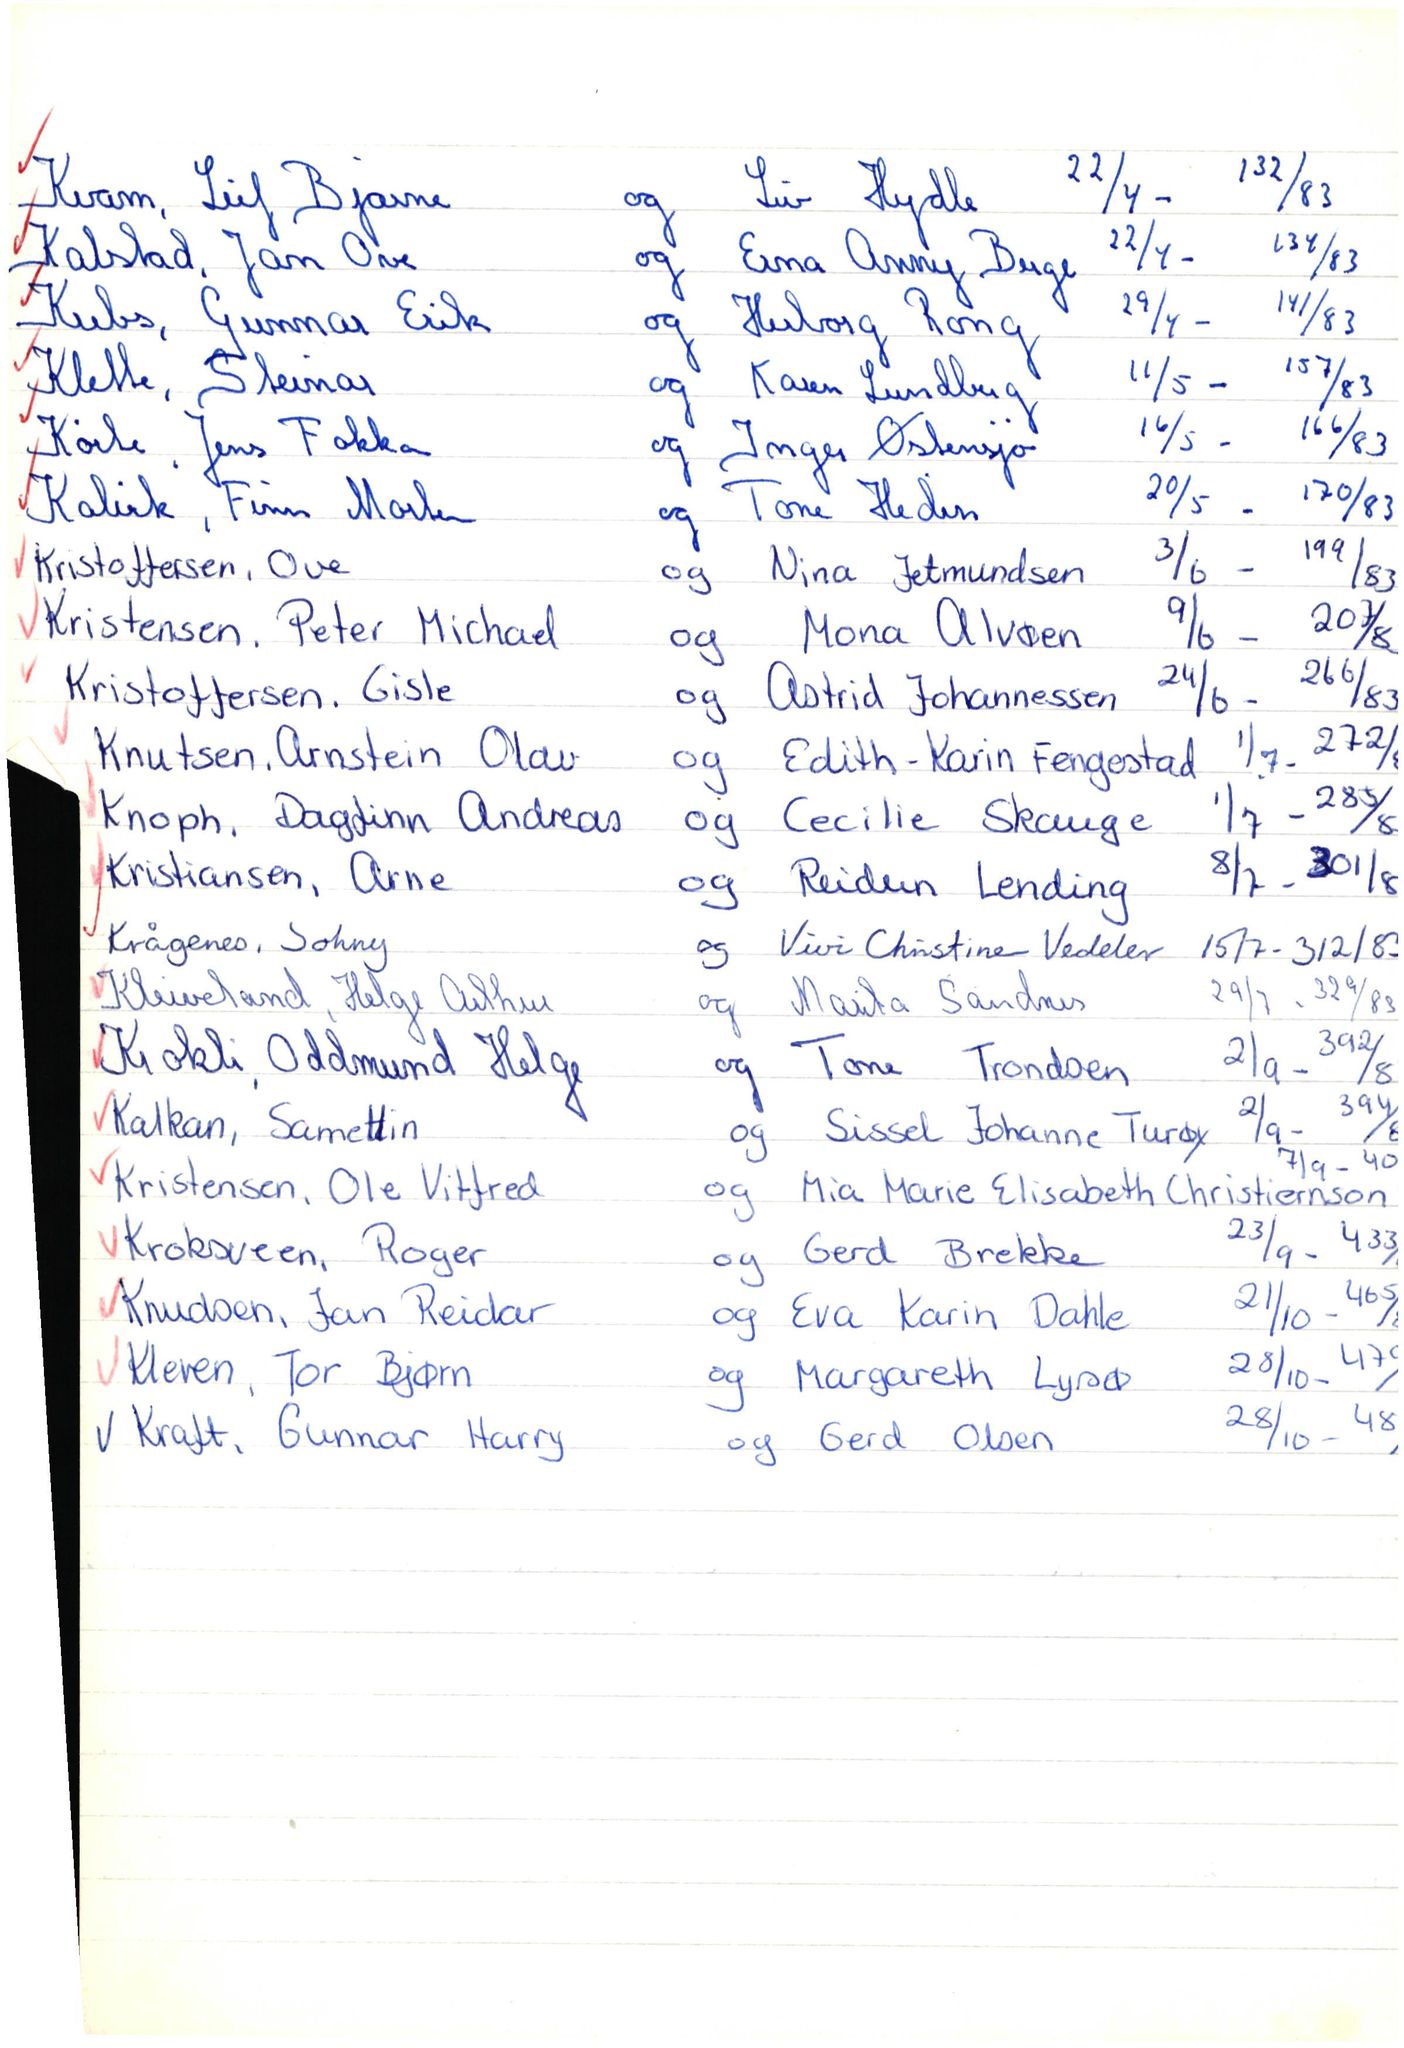 Kvam, Leif Bjarne og Liv Hydle 22/4 - 132/83
Kalstad, Jan Ove og Erna Anny Berge 22/4 - 134/83
Krebs, Gunnar Erik og Herborg Rong 29/4 - 141/83
Klette, Steinar og Karen Lundberg 11/5 - 157/83
Körte, Jens Fokka og Inger Østensjø 16/5 - 166/83
Kalvik, Finn Morten og Tone Hedin 20/5 - 170/83
Kristoffersen, Ove og Nina Jetmundsen 3/6 - 199/83
Kristensen, Peter Michael og Mona Alvøen 9/6 - 207/8
Kristoffersen, Gisle og Astrid Johannessen 24/6 - 266/83
Knutsen, Arnstein Olav og Edith-Karin Fengestad 1/7 - 272/8
Knoph, Dagfinn Andreas og Cecilie Skauge 1/7 - 285/8
Kristiansen, Arne og Reidun Lending 8/7 - 301/8
Krågenes, Johny og Vivi Christine Vedeler 15/7 - 312/83
Kleiveland, Helge Arthur og Marita Sandnes 29/7 - 329/83
Krokli, Oddmund Helge og Tone Trondsen 2/9 - 392/8
Kalkan, Samettin og Sissel Johanne Turøy 2/9 - 394/8
7/9 - 40
Kristensen, Ole Vitfred og Mia Marie Elisabeth Christiernson
Kroksveen, Roger og Gerd Brekke 23/9 - 433/
Knudsen, Jan Reidar og Eva Karin Dahle 21/10 - 465/
Kleven, Tor Bjørn og Margareth Lysø 28/10 - 479/
Kraft, Gunnar Harry og Gerd Olsen 28/10 - 48